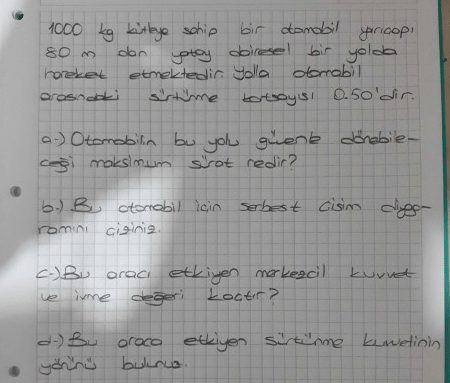 1000 kg kütleye sahip bir otomobil yarıçapı
80 m olan yatay dairesel bir yolda
hareket etmektedir. Yolla otomobil
arasındaki sürtünme katsayısı 0.50'dir.
a-) Otomobilin bu yolu güvenle dönebile-
ceği maksimum sürat nedir?
b-) Bu otomobil için serbest cisim diyag-
ramını çiziniz.
c-) Bu aracı etkiyen merkezcil kuvvet
ve ivme değeri kaçtır?
d-) Bu araca etkiyen sürtünme kuvvetinin
yönünü bulunuz.